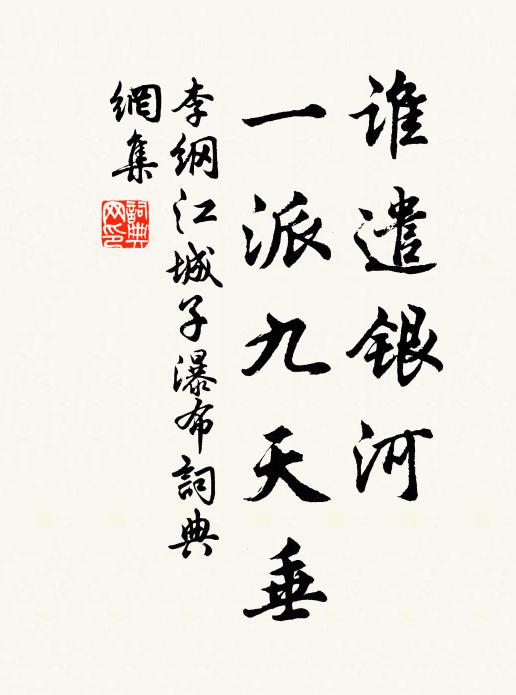 谁遣银河
一派九天垂
李纲江城子瀑布詞典
網集
詞典网印